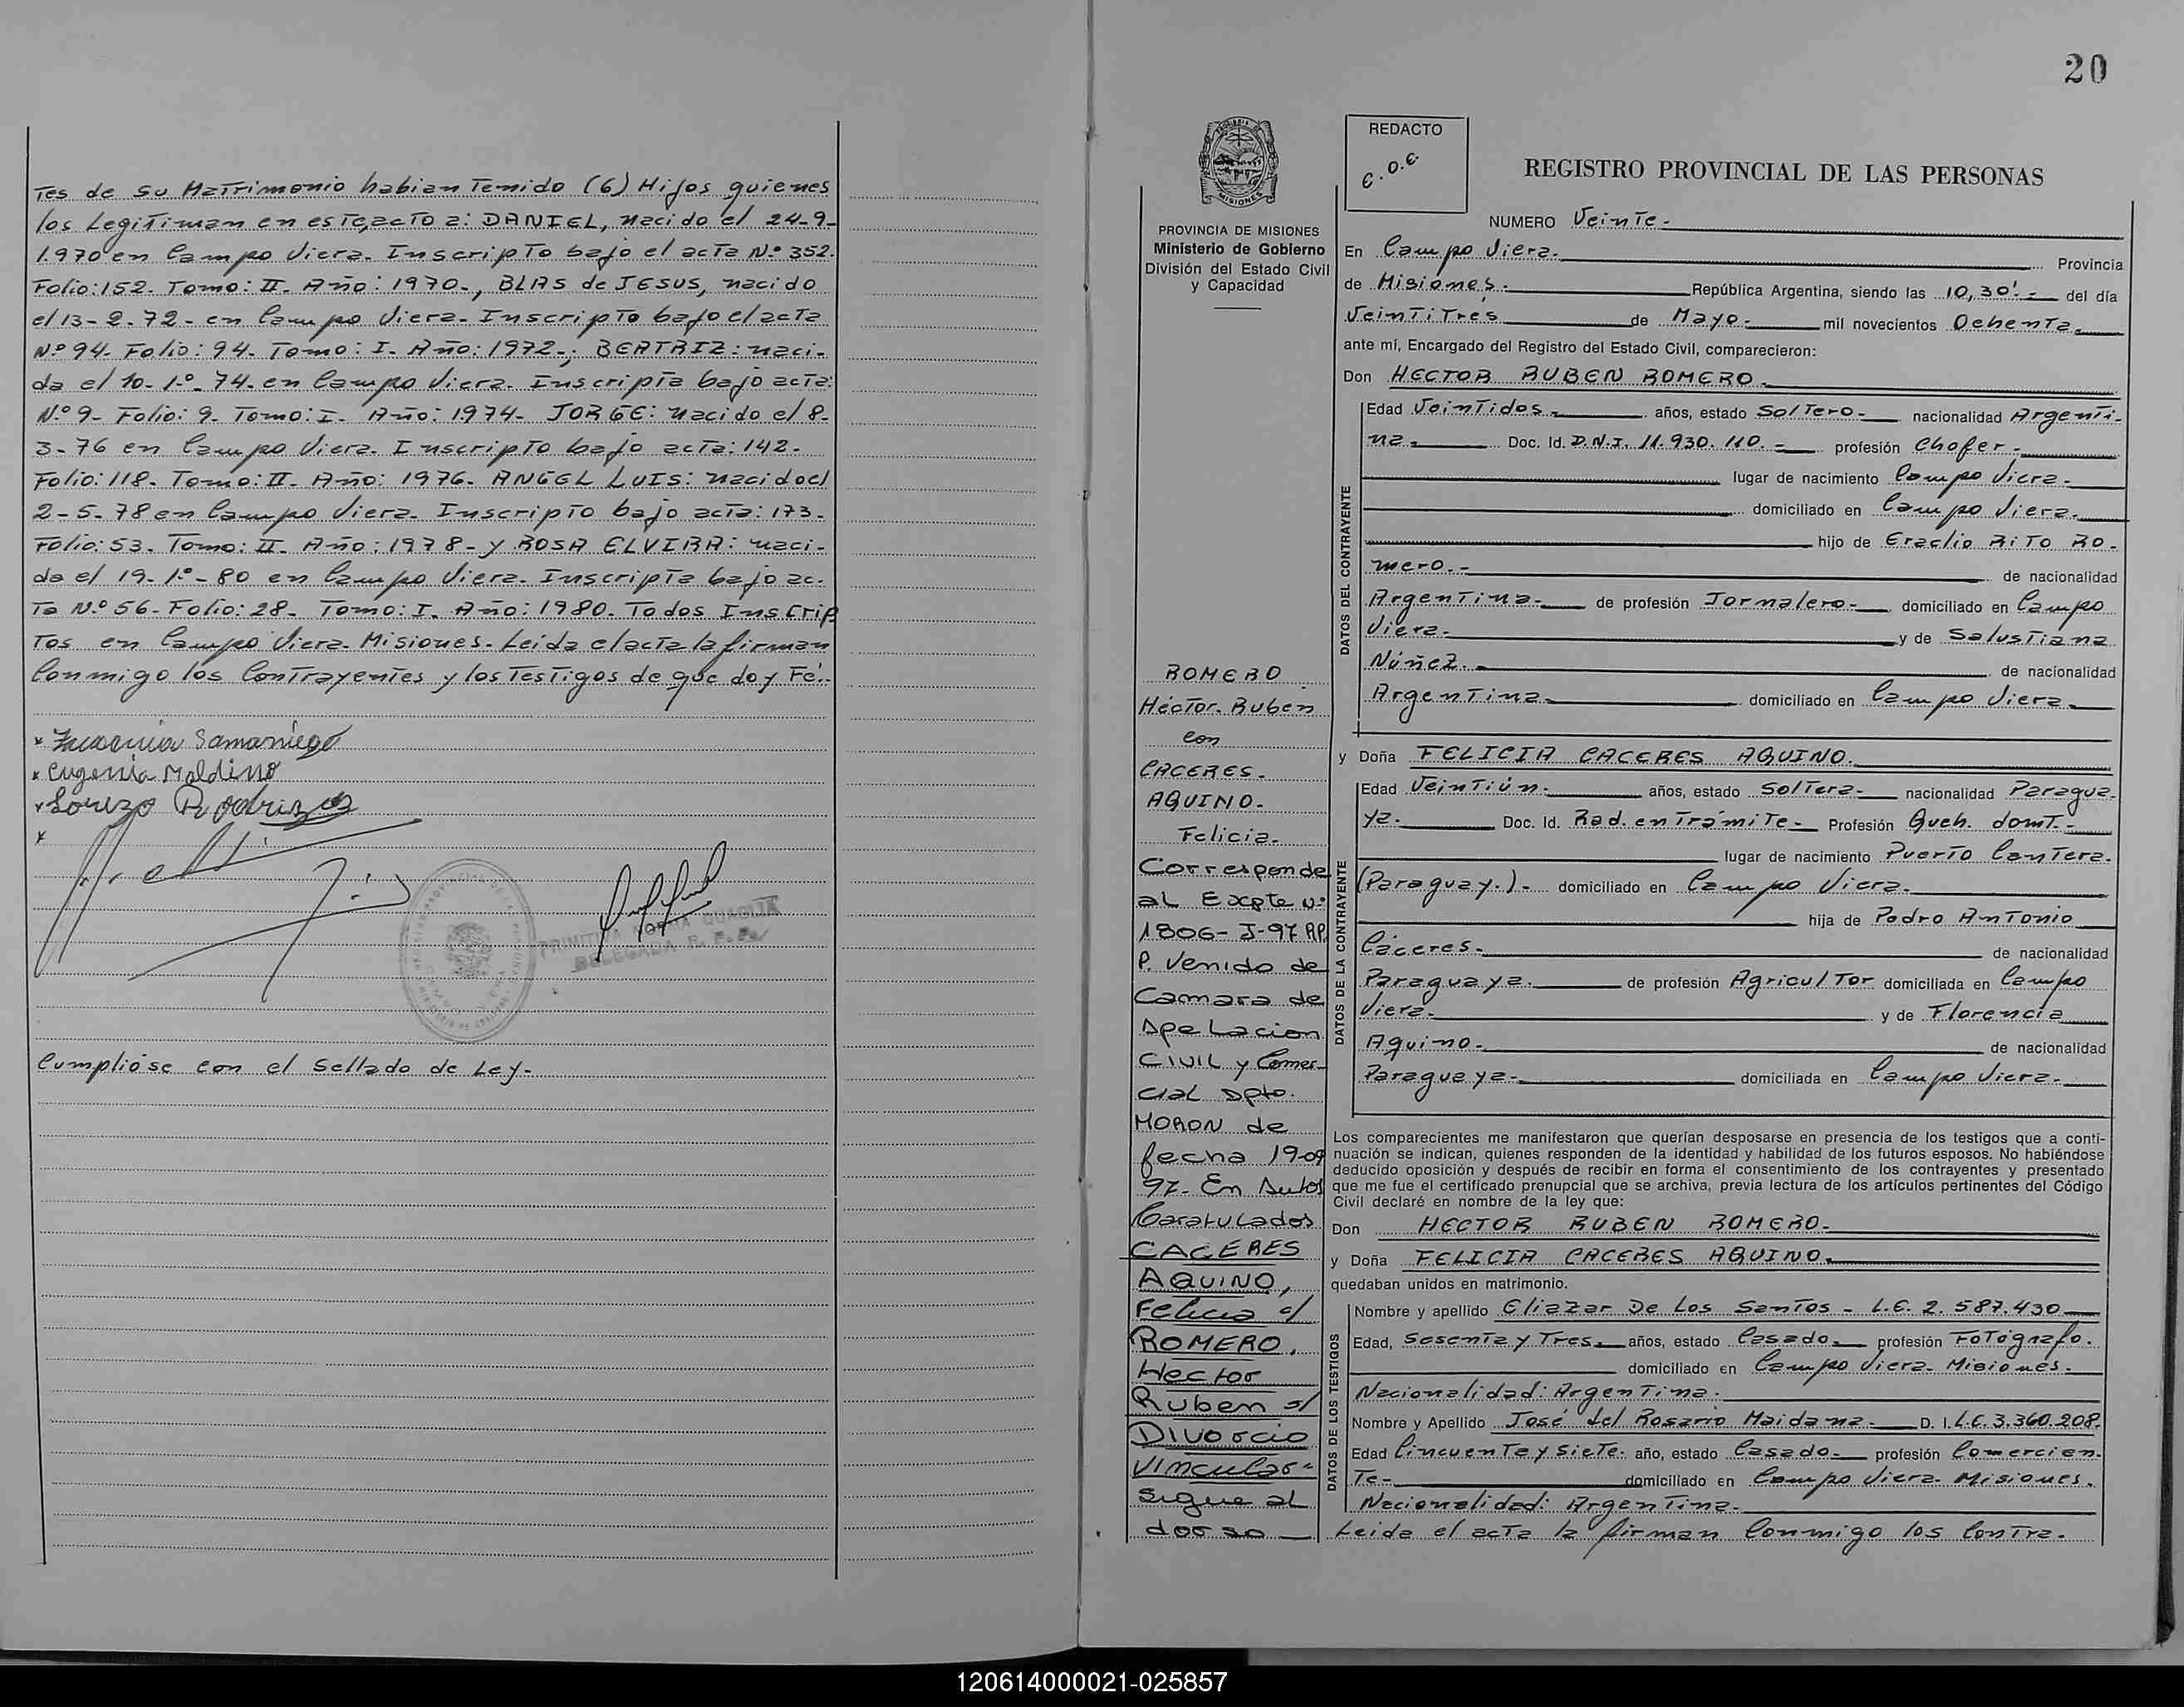 Tes de su Matrimonio habian Tenido (6) Hijos quienes
los Legitiman en este acto a: DANIEL, nacido el 24-9-
1.970 en Campo Viera. Inscripto bajo el acta N.º 352.
Folio: 152. Tomo: II. Año: 1970., BLAS de JESUS, nacido
el 13-2-72- en Campo Viera. Inscripto bajo el acta
N.º 94. Folio: 94. Tomo: I. Año: 1972-; BEATRIZ: naci-
da el 10-1.º-74- en Campo Viera. Inscripta bajo acta:
N.º 9- Folio: 9. Tomo: I- Año: 1974- JORGE: nacido el 8-
3-76 en Campo Viera. Inscripto bajo acta: 142-
Folio: 118. Tomo: II. Año: 1976. ANGEL LUIS: nacido el
2-5-78 en Campo Viera. Inscripto bajo acta: 173-
Folio: 53. Tomo: II. Año: 1978- y ROSA ELVIRA: naci-
da el 19-1.º-80 en Campo Viera. Inscripta bajo ac-
ta N.º 56- Folio: 28- Tomo: I. Año: 1980. Todos Inscrip
tos en Campo Viera- Misiones- Leida el acta la firman
Conmigo los Contrayentes y los Testigos de que doy Fé.-
Samaniego
Eugenia Maldino
Lorenzo Rodriguez
PRIMITIVA QUAGLIA
DELEGADA R. P. P.
Cumplióse con el sellado de Ley-
20
PROVINCIA DE MISIONES
Ministerio de Gobierno
División del Estado Civil
y Capacidad
ROMERO
Héctor. Ruben
con
CACERES-
AQUINO-
Felicia-
Corresponde
al Expte Nº
1806-J-97 RP
P. Venido de
Camara de
Apelacion
CIVIL y Comer-
cial Dpto.
MORON de
fecha 19-09
97- En Autos
Caratulados
CACERES
AQUINO,
Felicia c/
ROMERO,
Hector
Ruben s/
Divorcio
Vincular-
Sigue al
dorso
REDACTO
C.O.C.
REGISTRO PROVINCIAL DE LAS PERSONAS
NUMERO Veinte-
En Campo Viera- Provincia
de Misiones- República Argentina, siendo las 10,30'- del día
Veintitres de Mayo- mil novecientos Ochenta-
ante mí, Encargado del Registro del Estado Civil, comparecieron:
Don HECTOR RUBEN ROMERO-
DATOS DEL CONTRAYENTE
Edad Veintidos- años, estado Soltero- nacionalidad Argenti-
na- Doc. Id. D.N.I. 11.930.110.- profesión Chofer-
lugar de nacimiento Campo Viera-
domiciliado en Campo Viera-
hijo de Eraclio RiTo Ro-
mero.- de nacionalidad
Argentina- de profesión Jornalero- domiciliado en Campo
Viera- y de Salustiana
Núñez.- de nacionalidad
Argentina- domiciliado en Campo Viera-
y Doña FELICIA CACERES AQUINO-
DATOS DE LA CONTRAYENTE
Edad Veintiún- años, estado Soltera- nacionalidad Paragua-
ya- Doc. Id. Rad. en Trámite- Profesión Queh. domt.-
lugar de nacimiento Puerto Cantera-
(Paraguay.)- domiciliado en Campo Viera-
hija de Pedro Antonio
Cáceres- de nacionalidad
Paraguaya- de profesión Agricultor domiciliada en Campo
Viera- y de Florencia
Aquino- de nacionalidad
Paraguaya- domiciliada en Campo Viera-
Los comparecientes me manifestaron que querían desposarse en presencia de los testigos que a conti-
nuación se indican, quienes responden de la identidad y habilidad de los futuros esposos. No habiéndose
deducido oposición y después de recibir en forma el consentimiento de los contrayentes y presentado
que me fue el certificado prenupcial que se archiva, previa lectura de los artículos pertinentes del Código
Civil declaré en nombre de la ley que:
Don HECTOR RUBEN ROMERO-
y Doña FELICIA CACERES AQUINO-
quedaban unidos en matrimonio.
DATOS DE LOS TESTIGOS
Nombre y apellido Eliazar De Los Santos - L.E. 2.587.430
Edad, Sesenta y Tres- años, estado Casado- profesión Fotógrafo-
domiciliado en Campo Viera- Misiones-
Nacionalidad: Argentina-
Nombre y Apellido José del Rosario Maidana- D. I. L.E. 3.360.208.
Edad Cincuenta y siete- año, estado Casado- profesión Comercian-
te- domiciliado en Campo Viera- Misiones.
Nacionalidad: Argentina-
Leida el acta la firman Conmigo los Contra-
120614000021-025857